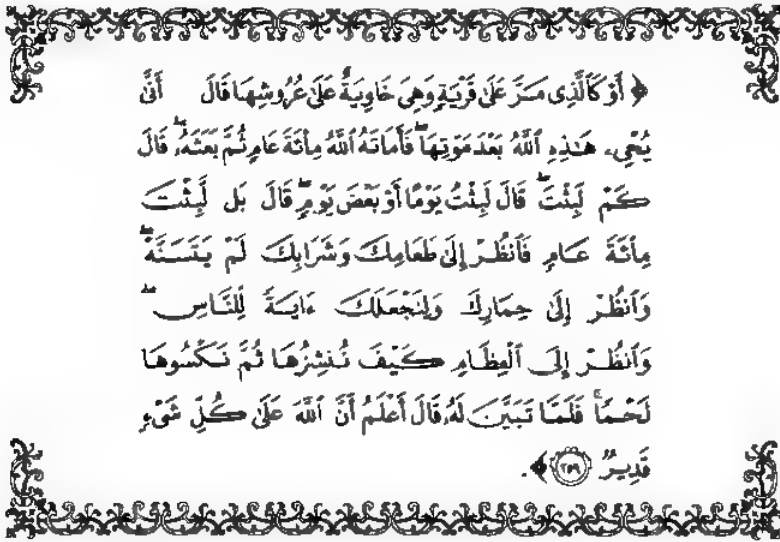 ﴿ أَوْ كَٱلَّذِى مَرَّ عَلَىٰ قَرْيَةٍ وَهِىَ خَاوِيَةٌ عَلَىٰ عُرُوشِهَا قَالَ أَنَّىٰ
يُحْىِۦ هَـٰذِهِ ٱللَّهُ بَعْدَ مَوْتِهَا ۖ فَأَمَاتَهُ ٱللَّهُ مِا۟ئَةَ عَامٍ ثُمَّ بَعَثَهُۥ ۖ قَالَ
كَمْ لَبِثْتَ ۖ قَالَ لَبِثْتُ يَوْمًا أَوْ بَعْضَ يَوْمٍ ۖ قَالَ بَل لَّبِثْتَ
مِا۟ئَةَ عَامٍ فَٱنظُرْ إِلَىٰ طَعَامِكَ وَشَرَابِكَ لَمْ يَتَسَنَّهْ ۖ
وَٱنظُرْ إِلَىٰ حِمَارِكَ وَلِنَجْعَلَكَ ءَايَةً لِّلنَّاسِ ۖ
وَٱنظُرْ إِلَى ٱلْعِظَامِ كَيْفَ نُنشِزُهَا ثُمَّ نَكْسُوهَا
لَحْمًا ۚ فَلَمَّا تَبَيَّنَ لَهُۥ قَالَ أَعْلَمُ أَنَّ ٱللَّهَ عَلَىٰ كُلِّ شَىْءٍ
قَدِيرٌ ٢٥٩ ﴾.